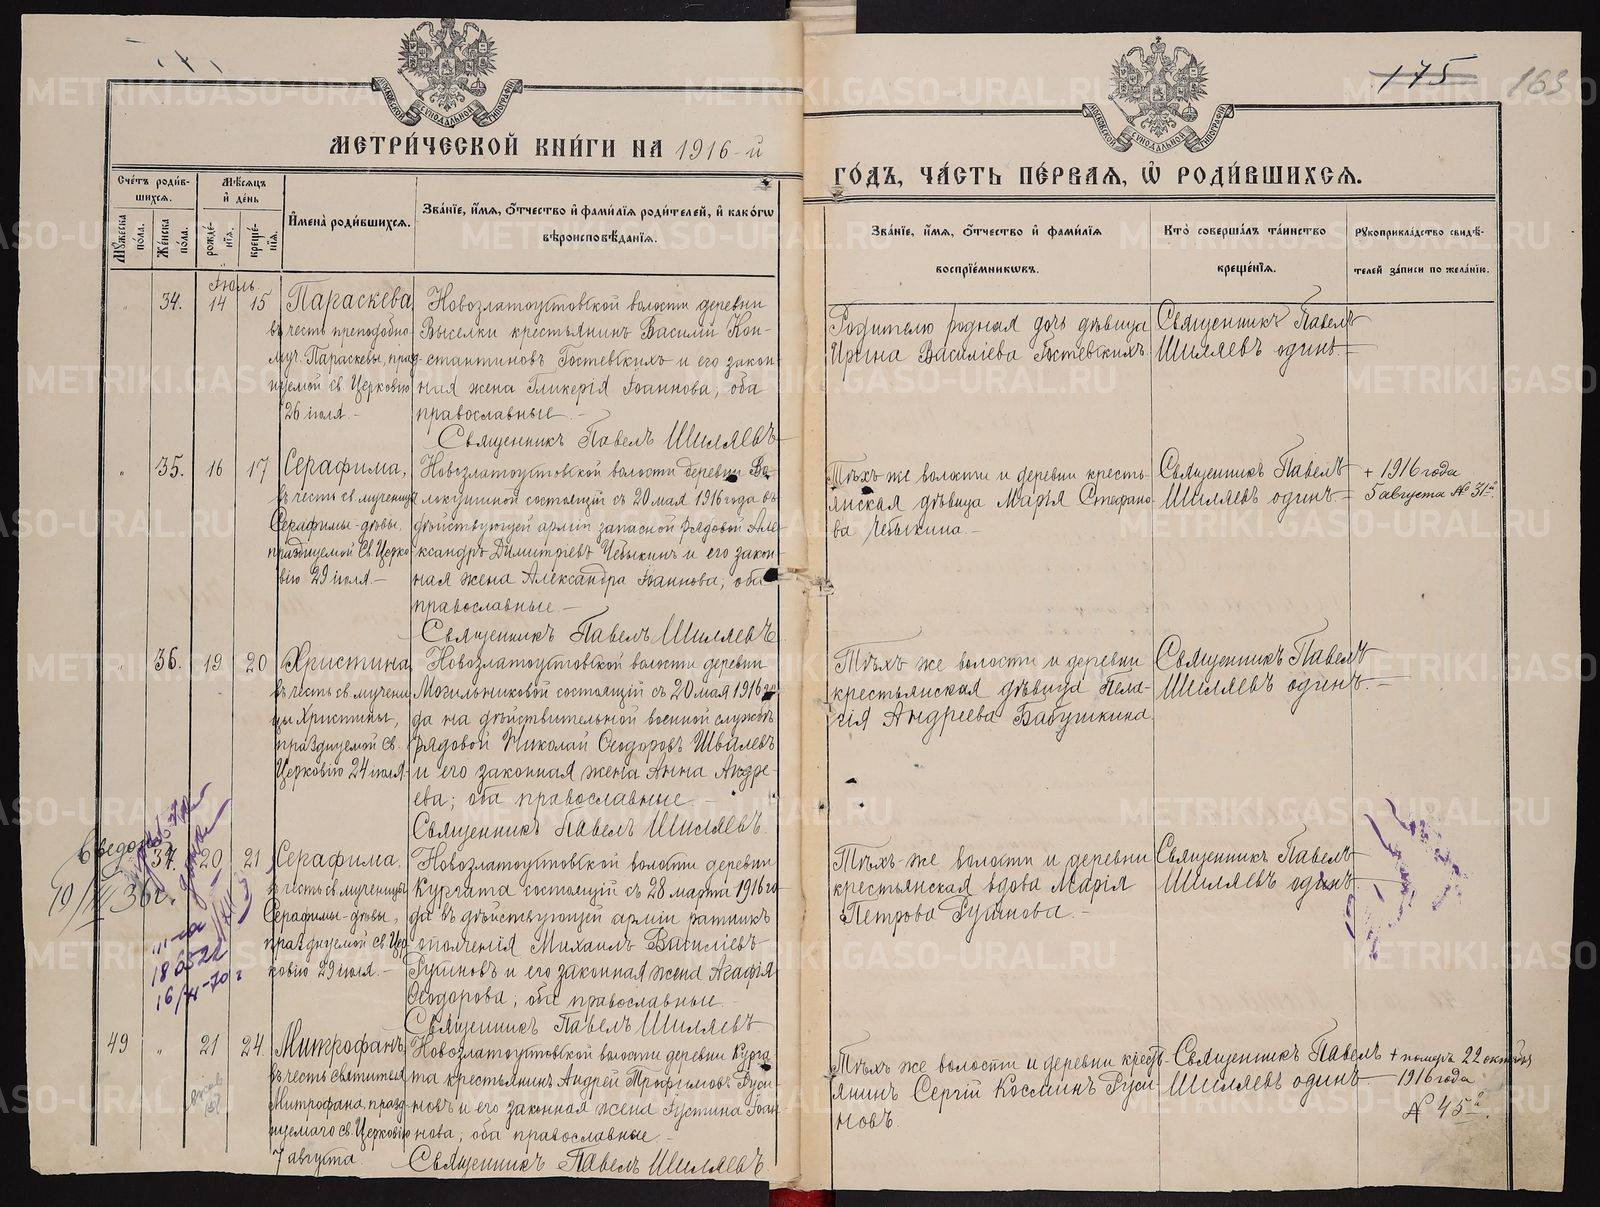 МЕТРИ́ЧЕСКОЙ КНИ́ГИ НА 1916-й
ГО́ДЪ, ЧА́СТЬ ПЕ́РВАЯ, Ѡ РОДИ́ВШИХСЯ.
175 163
Сче́тъ роди́в-
шихся.
Му́жеска по́ла.
Же́нска по́ла.
Мѣ́сяцъ
и де́нь
рожде́нія.
креще́нія.
Имена̀ роди́вшихся.
Зва́ніе, и́мя, о́тчество и фами́лія роди́телей, и како́гѡ
вѣроисповѣ́данія.
Зва́ніе, и́мя, о́тчество и фами́лія
воспріе́мникѡвъ.
Кто̀ соверша́лъ та́инство
креще́нія.
Рукоприкла́дство свидѣ́-
телей за́писи по жела́нію.
Іюль
34. 14 15
Параскева
въ честь преподобно
муч. Параскевы, празд-
нуемой св. Церковію
26 іюля.-
Новозлатоустовской волости деревни
Выселки крестьянинъ Василій Кон-
стантиновъ Гостевскихъ и его закон-
ная жена Гликерія Іоаннова; оба
православные.-
Священникъ Павелъ Шиляевъ
Родителю родная дочь дѣвица
Ирина Василіева Гостевскихъ
Священникъ Павелъ
Шиляевъ одинъ.
35. 16 17
Серафима,
въ честь св. мученицы
Серафимы-дѣвы,
празднуемой Св. Церко
вію 29 іюля.-
Новозлатоустовской волости деревни Во-
локушиной состоящій съ 20 мая 1916 года въ
дѣйствующей арміи запасной рядовой Але-
ксандръ Димитріевъ Чебыкинъ и его закон-
ная жена Александра Іоаннова; оба
православные -
Священникъ Павелъ Шиляевъ
Тѣхъ же волости и деревни кресть-
янская дѣвица Марія Стефано-
ва Чебыкина.-
Священникъ Павелъ
Шиляевъ одинъ
+ 1916 года
5 августа № 31й.
36. 19 20
Христина
въ честь св. мучени
цы Христины,
празднуемой св.
Церковію 24 іюля-
Новозлатоустовской волости деревни
Могильниковой состоящій съ 20 мая 1916 го-
да на дѣйствительной военной службѣ
рядовой Николай Ѳеодоровъ Швалевъ
и его законная жена Анна Андре-
ева; оба православные.-
Священникъ Павелъ Шиляевъ.
Тѣхъ же волости и деревни
крестьянская дѣвица Пела-
гія Андреева Бабушкина.
Священникъ Павелъ
Шиляевъ одинъ.-
37. 20 21
Серафима.
въ честь св. мученицы
Серафимы-дѣвы,
празднуемой св. Цер
ковію 29 іюля.-
Новозлатоустовской волости деревни
Кургата состоящій съ 28 марта 1916 го
да въ дѣйствующей арміи ратникъ
ополченія Михаилъ Василіевъ
Русиновъ и его законная жена Агафія
Ѳеодорова; оба православные.
Священникъ Павелъ Шиляевъ
Тѣхъ же волости и деревни
крестьянская вдова Марія
Петрова Русинова.-
Священникъ Павелъ
Шиляевъ одинъ.
III-га
16/XI-70г
49 21 24
Митрофанъ
въ честь святителя
Митрофана, празд-
нуемаго св. Церковію
7 августа.
Новозлатоустовской волости деревни Курга
та крестьянинъ Андрей Трофимовъ Руси-
новъ и его законная жена Іустина Іоан-
нова; оба православные.-
Священникъ Павелъ Шиляевъ
Тѣхъ же волости и деревни крест-
янинъ Сергій Косминъ Руси
новъ.
Священникъ Павелъ
Шиляевъ одинъ
+ померъ 22 октября
1916 года
№ 45й.
METRIKI.GASO-URAL.RU